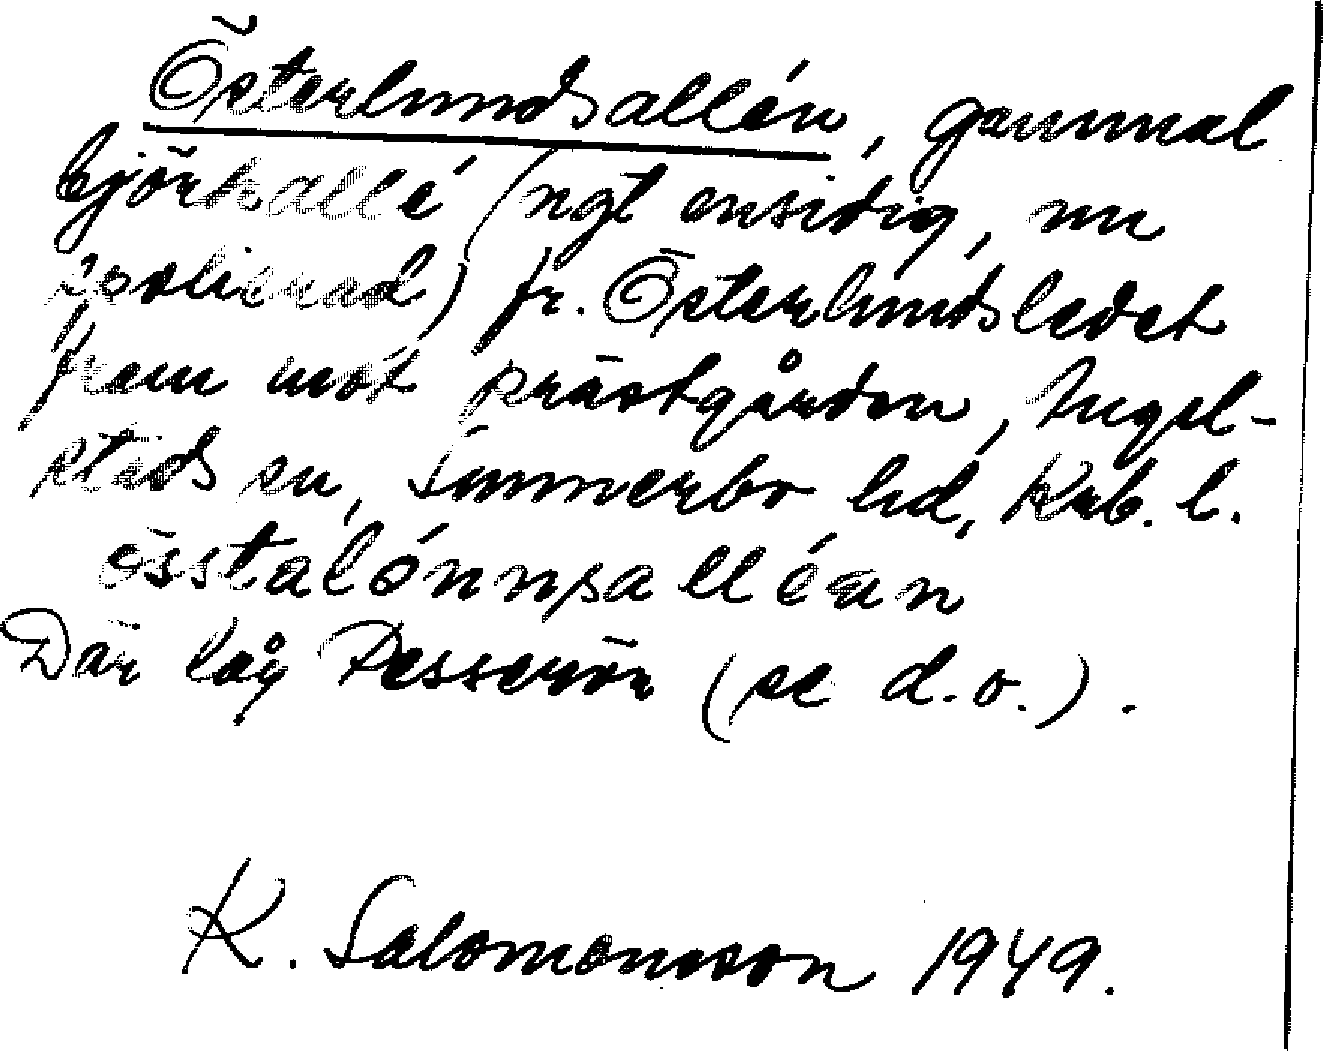 Österlundsallén, gammal
björkallé (ngt ensidig, nu
isolierad) fr. Österlundsledet
fram mot prästgården, Ingel-
stads sn, Sunnerbo hd, Krb. l.
össtalónnsalléan
Där låg Pesserör (se d.o.).
K. Salomonsson 1949.